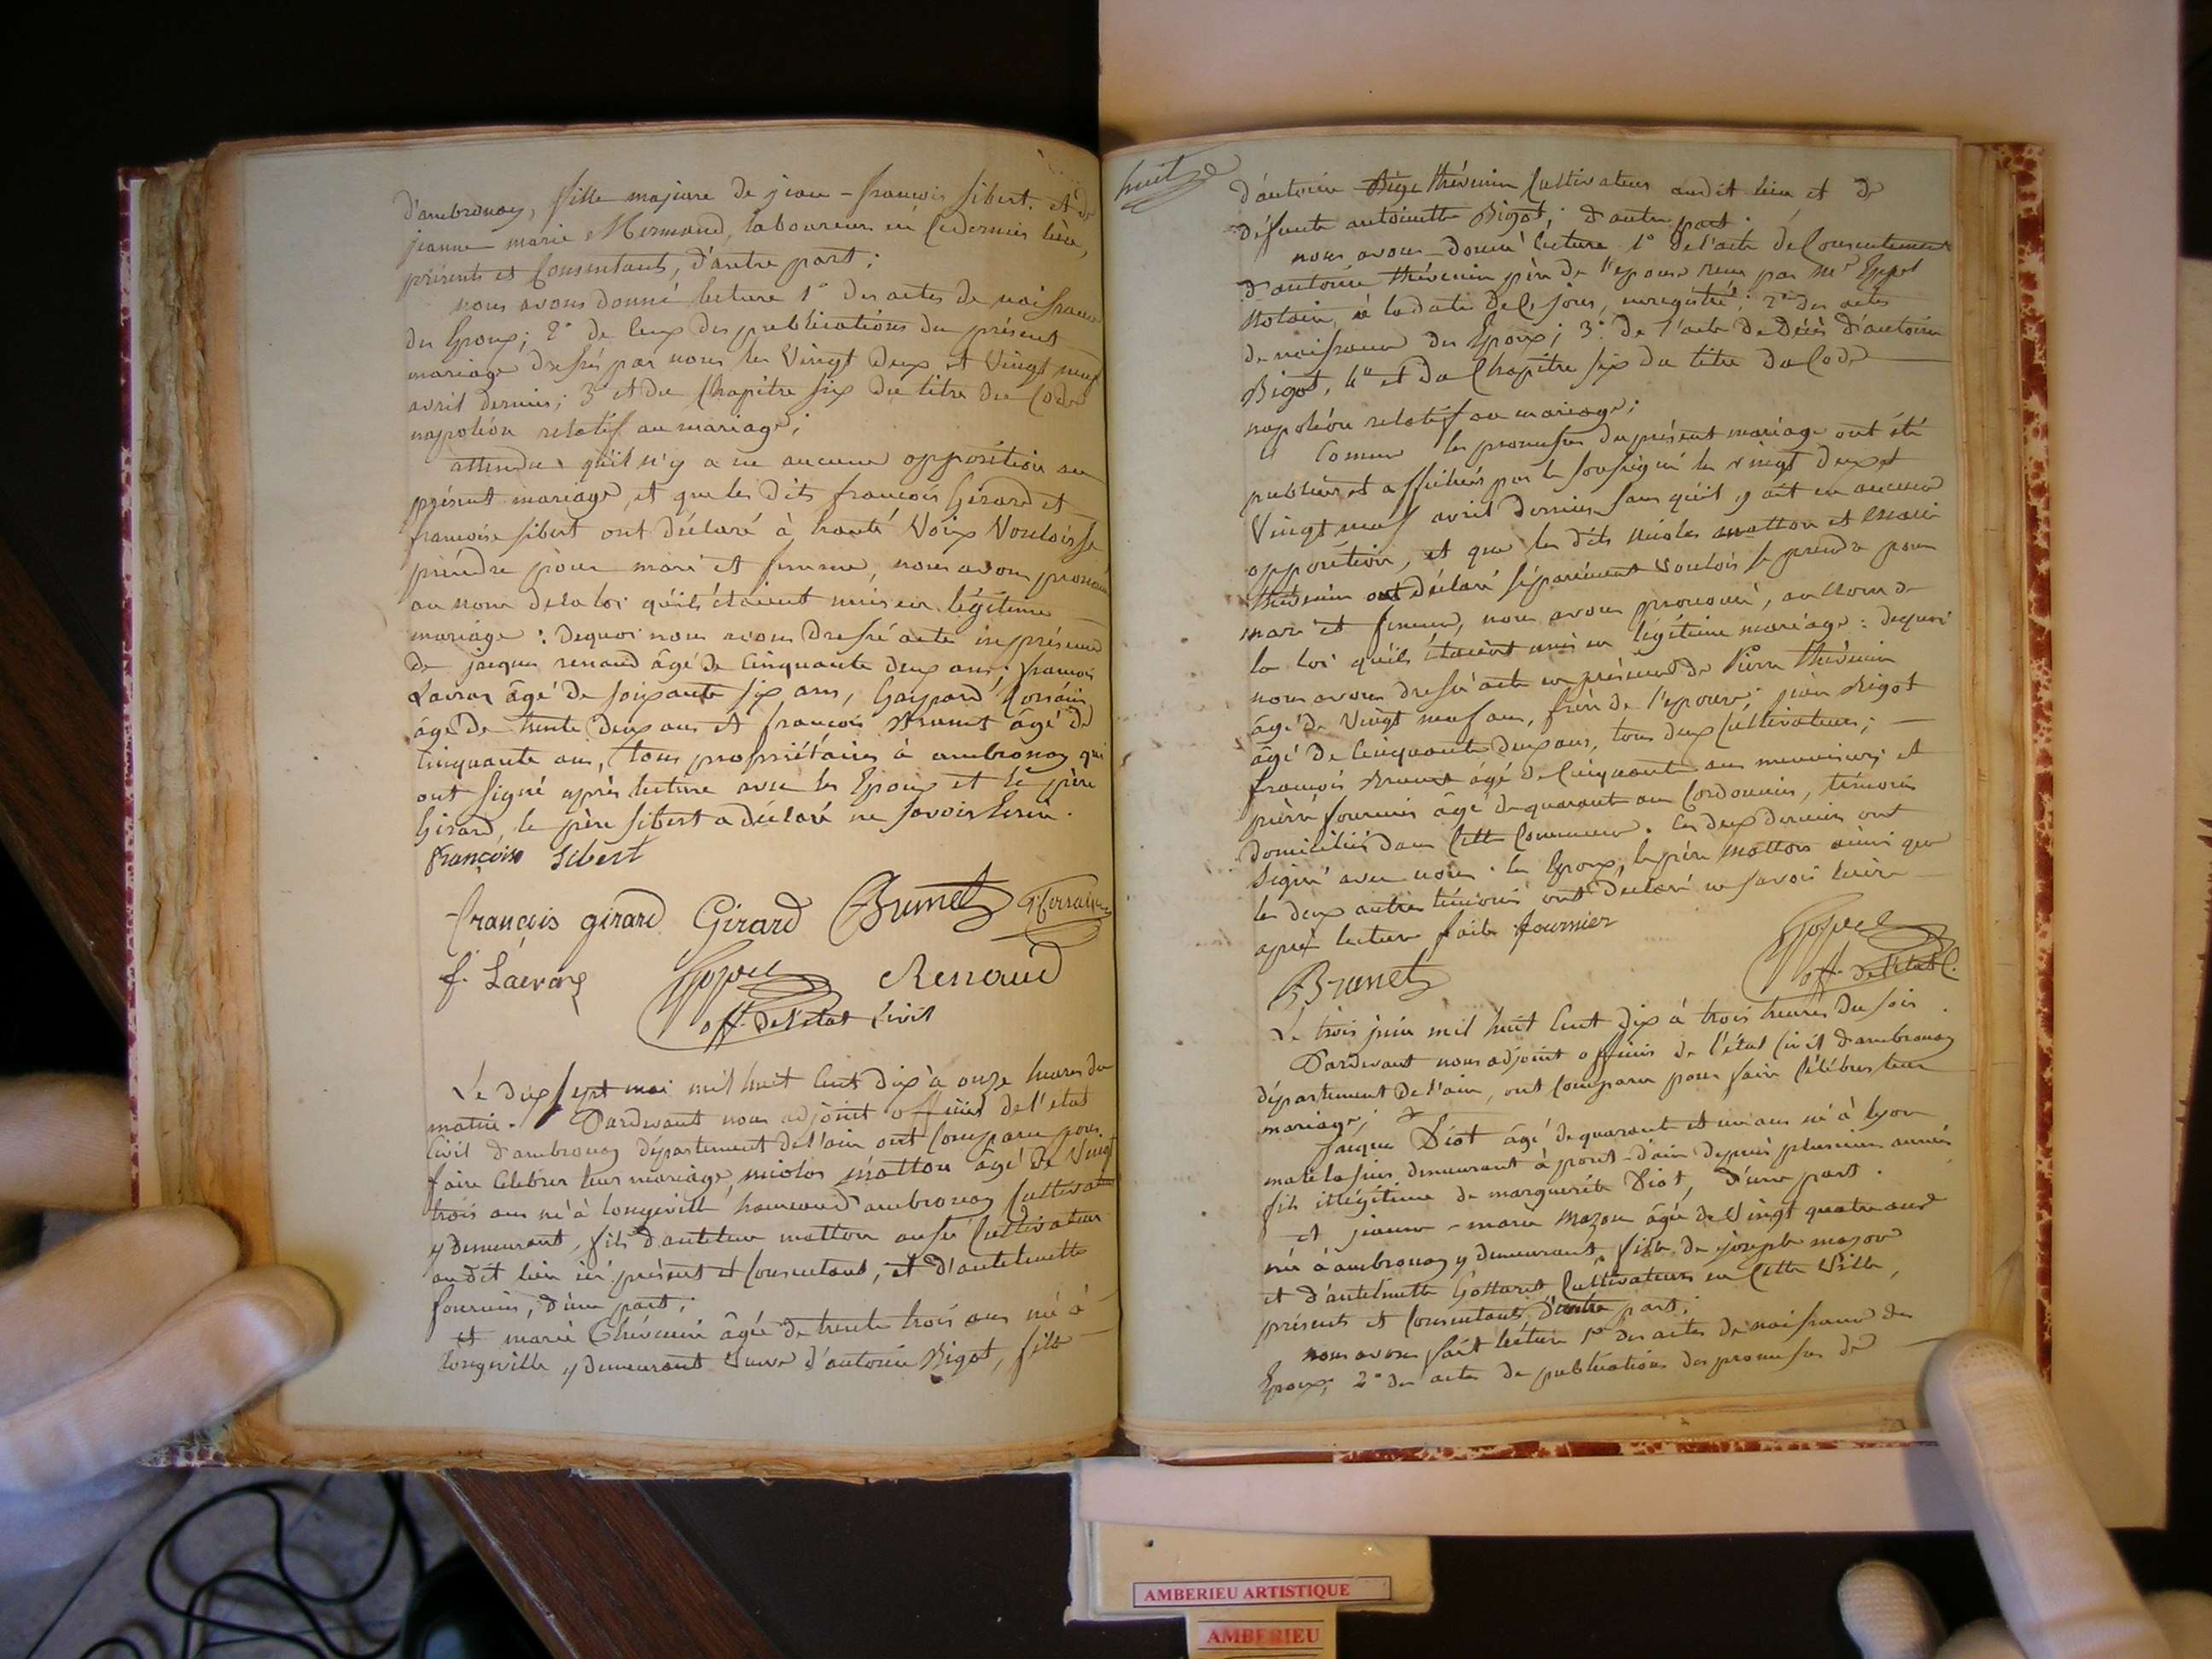 d'ambronay, fille majeure de jean-françois sibert et de
jeanne marie Mermand, laboureur en ce dernier lieu,
présents et Consentants, d'autre part;
nous avons donné lecture 1° des actes de naissance
des Epoux; 2° de ceux des publications du présent
mariage dressés par nous les Vingt deux et Vingt neuf
avril dernier; 3° et du Chapitre six du titre du Code
napoléon relatif au mariage;
attendu qu'il n'y a eu aucune opposition au
présent mariage, et que les dits françois Girard et
françoise sibert ont déclaré à haute Voix Vouloir se
prendre pour mari et femme, nous avons prononcé
au nom de la loi qu'ils étaient unis en légitime
mariage: dequoi nous avons dressé acte en présence
de jacques renaud âgé de Cinquante deux ans; françois
Lavran âgé de soixante six ans, Gaspard
âgé de trente deux ans et françois Brunet âgé de
Cinquante ans, tous propriétaires à ambronay qui
ont signé après lecture avec les Epoux et le père
Girard, le père sibert a déclaré ne savoir Ecrire.
françoise sibert
françois girard Girard Brunet
f. Renaud
off. de l'état Civil
Le dix sept mai mil huit Cent dix à onze heures du
matin. Pardevant nous adjoint officier de l'état
Civil d'ambronay département de l'ain ont Comparu pour
faire Celebrer leur mariage, nicolas mattou âgé de Vingt
trois ans né à longeville hameau d'ambronay Cultivateur
y demeurant, fils d'antelme mattou aussi Cultivateur
au dit lieu ici présent et Consentant, et d'antelmette
fournier, d'une part;
et marie Thévenin âgée de trente trois ans né à
longeville y demeurant Veuve d'antoine Bigot, fille
huit
d'antoine Bige thévenin Cultivateur audit lieu et de
défunte antoinette Bigot; d'autre part.
nous avons donné lecture 1° de l'acte de Consentement
d'antoine thévenin père de l'epouse reçu par Mr
Notaire, à la date de Ce jour, enregistré; 2° des actes
de naissance des Epoux; 3° de l'acte de Décès d'antoine
Bigot, 4° et du Chapitre six du titre du Code
napoléon relatif au mariage;
Comme les promesses du présent mariage ont été
publiées et affichées par le soussigné les vingt deux et
Vingt neuf avril dernier sans qu'il y ait eu aucune
opposition, et que les dits nicolas mattou et marie
thévenin ont déclaré séparément Vouloir se prendre pour
mari et femme, nous avons prononcé, au Nom de
la loi qu'ils étaient unis en légitime mariage: dequoi
nous avons dressé acte en présence de Pierre thévenin
âgé de Vingt neuf ans, frère de l'epouse; Bigot
âgé de Cinquante deux ans, tous deux Cultivateurs;
françois Brunet âgé de Cinquante ans menuisier; et
pierre fournier âgé de quarante ans Cordonnier, témoins
domiciliés dans Cette Commune. Ces deux derniers ont
signé avec nous: les Epoux, le père Mattou ainsi que
les deux autres témoins ont déclaré ne savoir écrire
après lecture faite fournier
Brunet off. de l'état C.
Le trois juin mil huit Cent dix à trois heures du soir.
Pardevant nous adjoint officier de l'état Civil d'ambronay
département de l'ain, ont Comparu pour faire Célébrer leur
mariage;
Jaque Diot âgé de quarante et un ans né à lyon
matelassier demeurant à pont-d'ain depuis plusieurs années
fils illégitime de marguerite Diot, d'une part.
et jeanne-marie Mazou âgée de Vingt quatre ans
née à ambronay y demeurant, fille de joseph mazou
et d'antelmette Gottaret Cultivateurs en Cette Ville,
présents et Consentants, d'autre part;
nous avons fait lecture 1° des actes de naissance des
Epoux; 2° des actes de publications des promesses de
AMBERIEU ARTISTIQUE
AMBERIEU